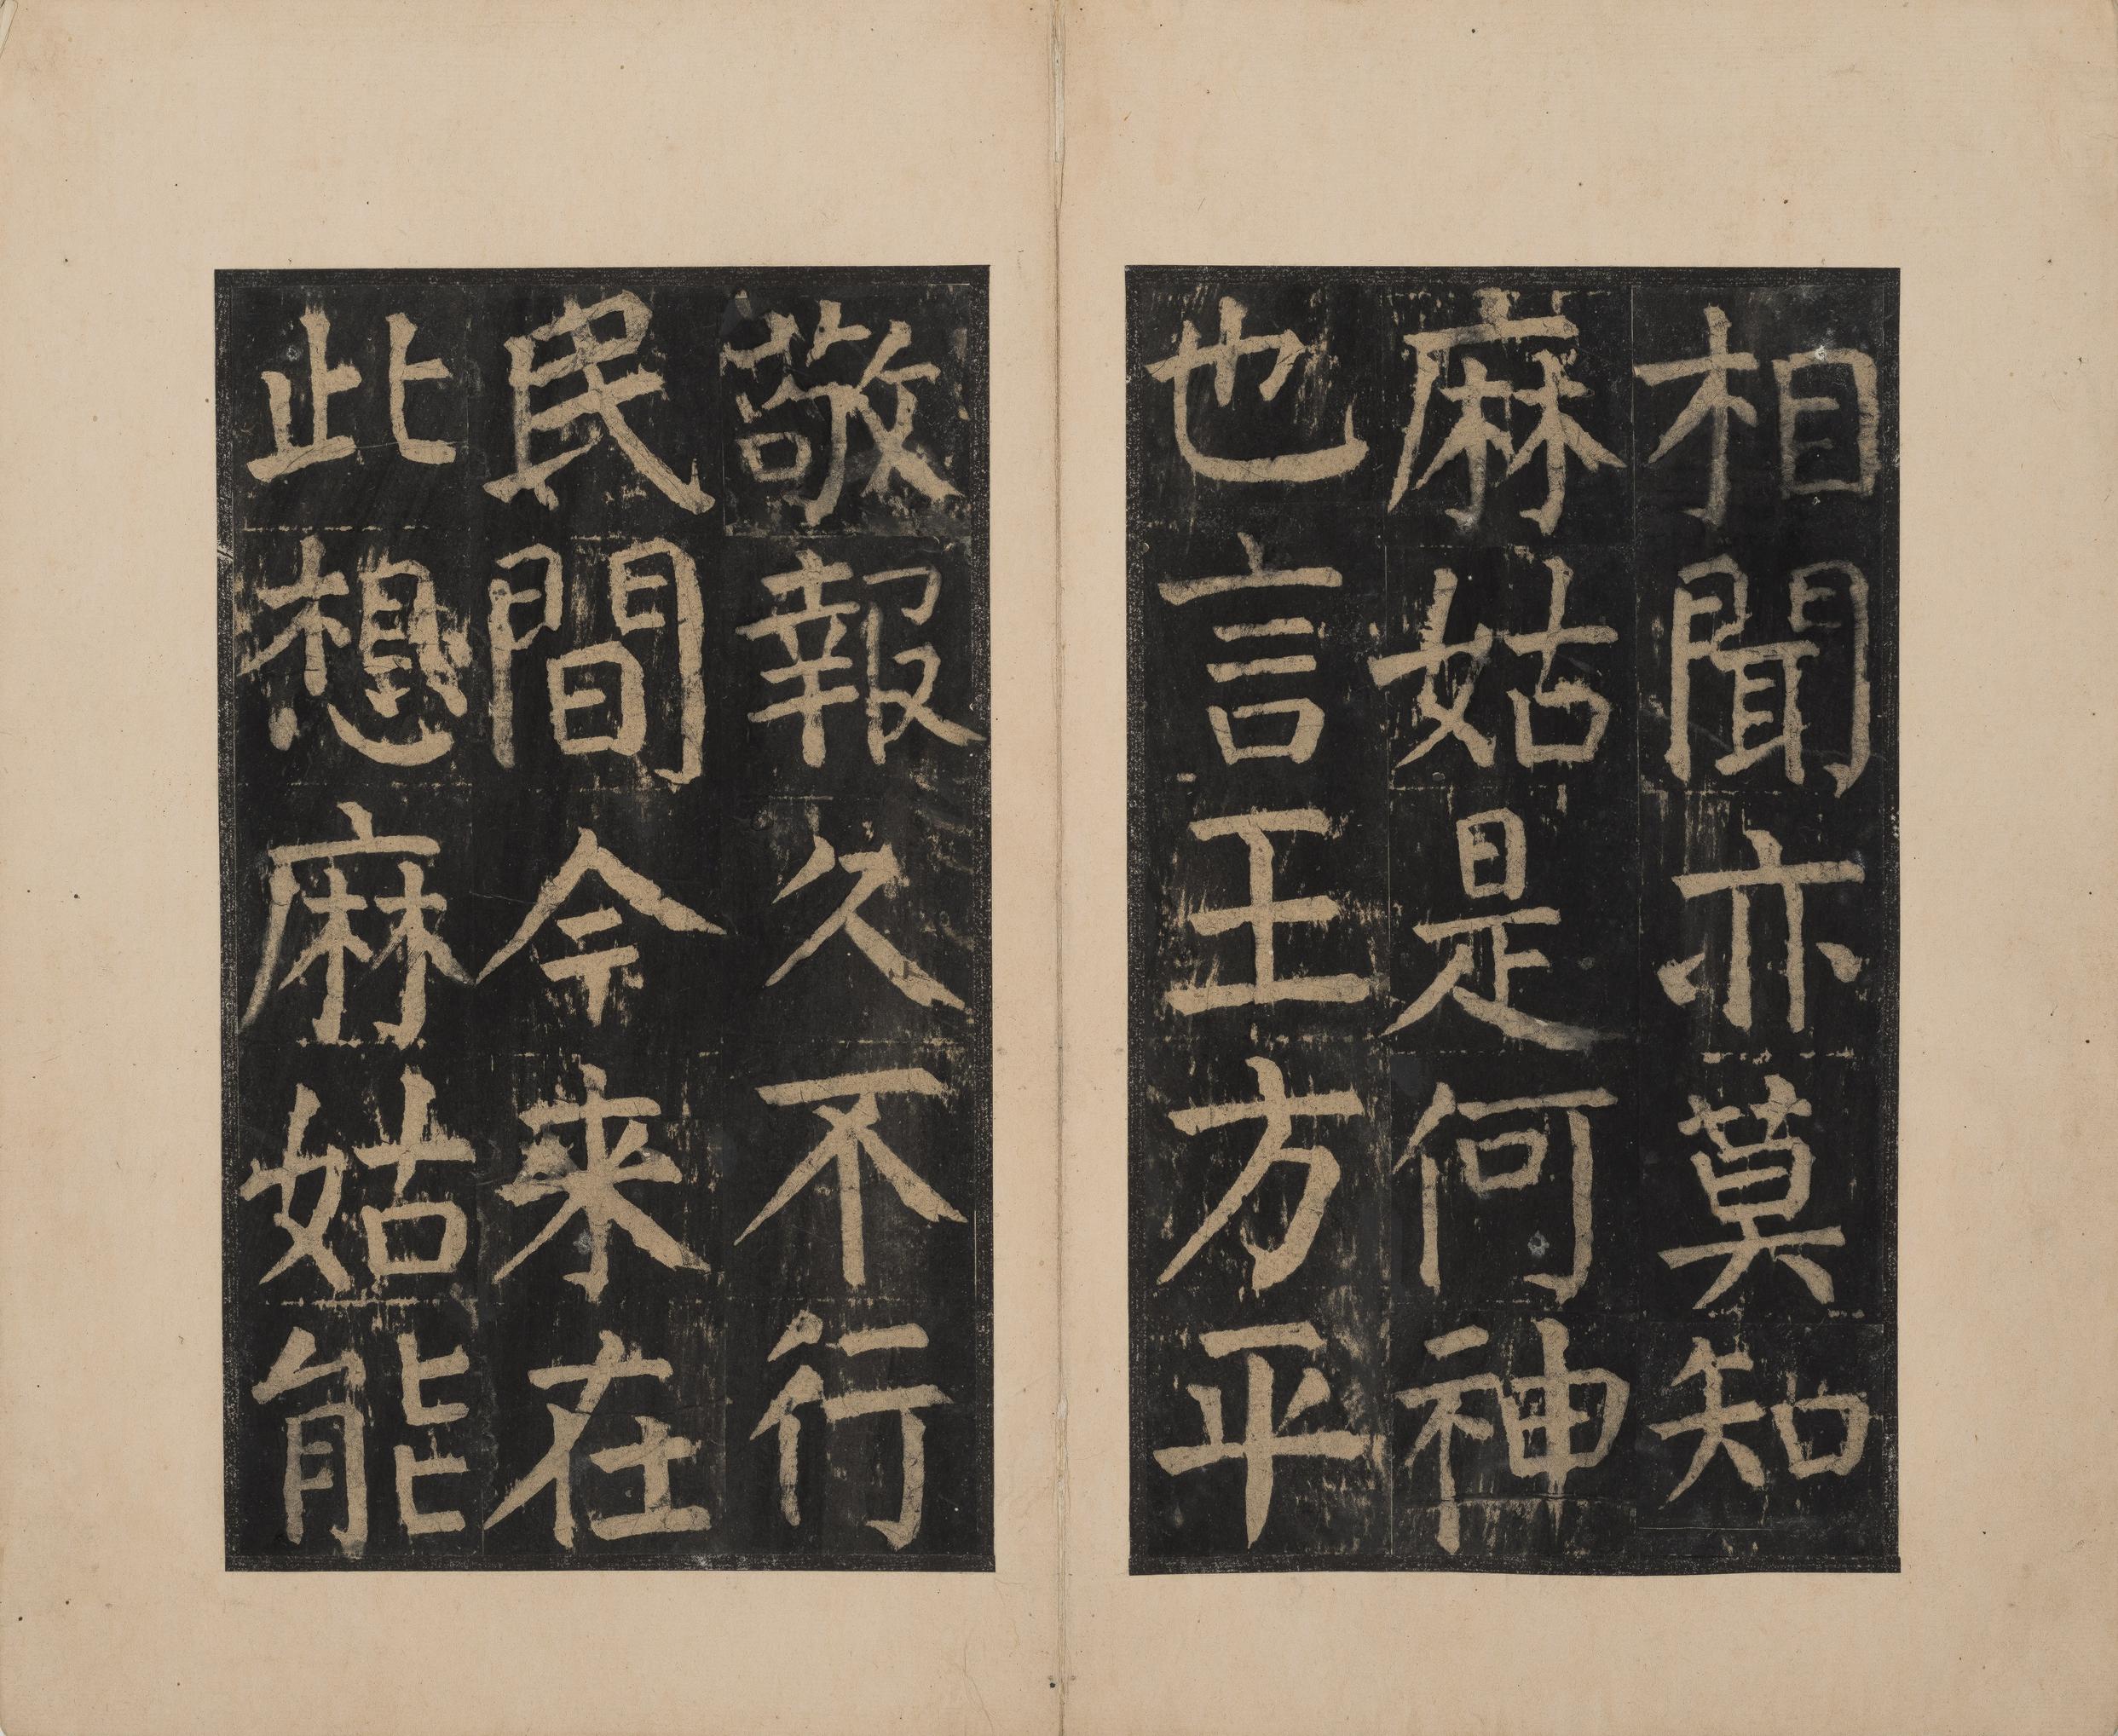 相聞亦莫知
麻姑是何神
也言王方平
敬報久不行
民間今来在
此想麻姑能